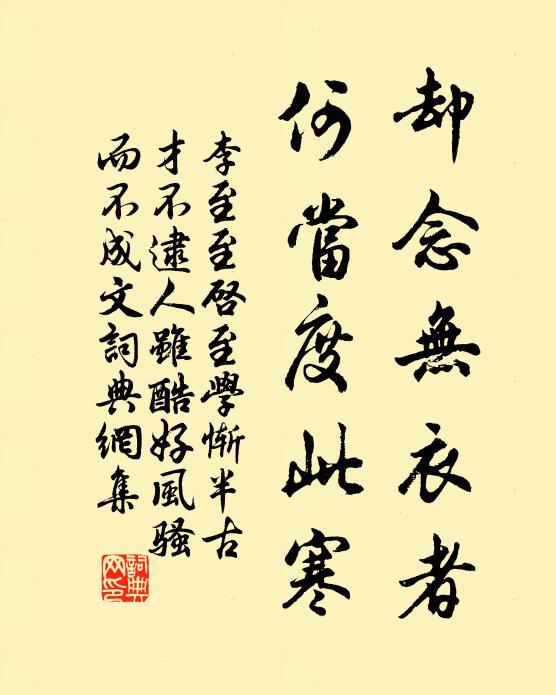 却念無衣者
何當度此寒
李至至啓至學慚半古
才不逮人雖酷好風騷
而不成文詞典網集
詞典网印